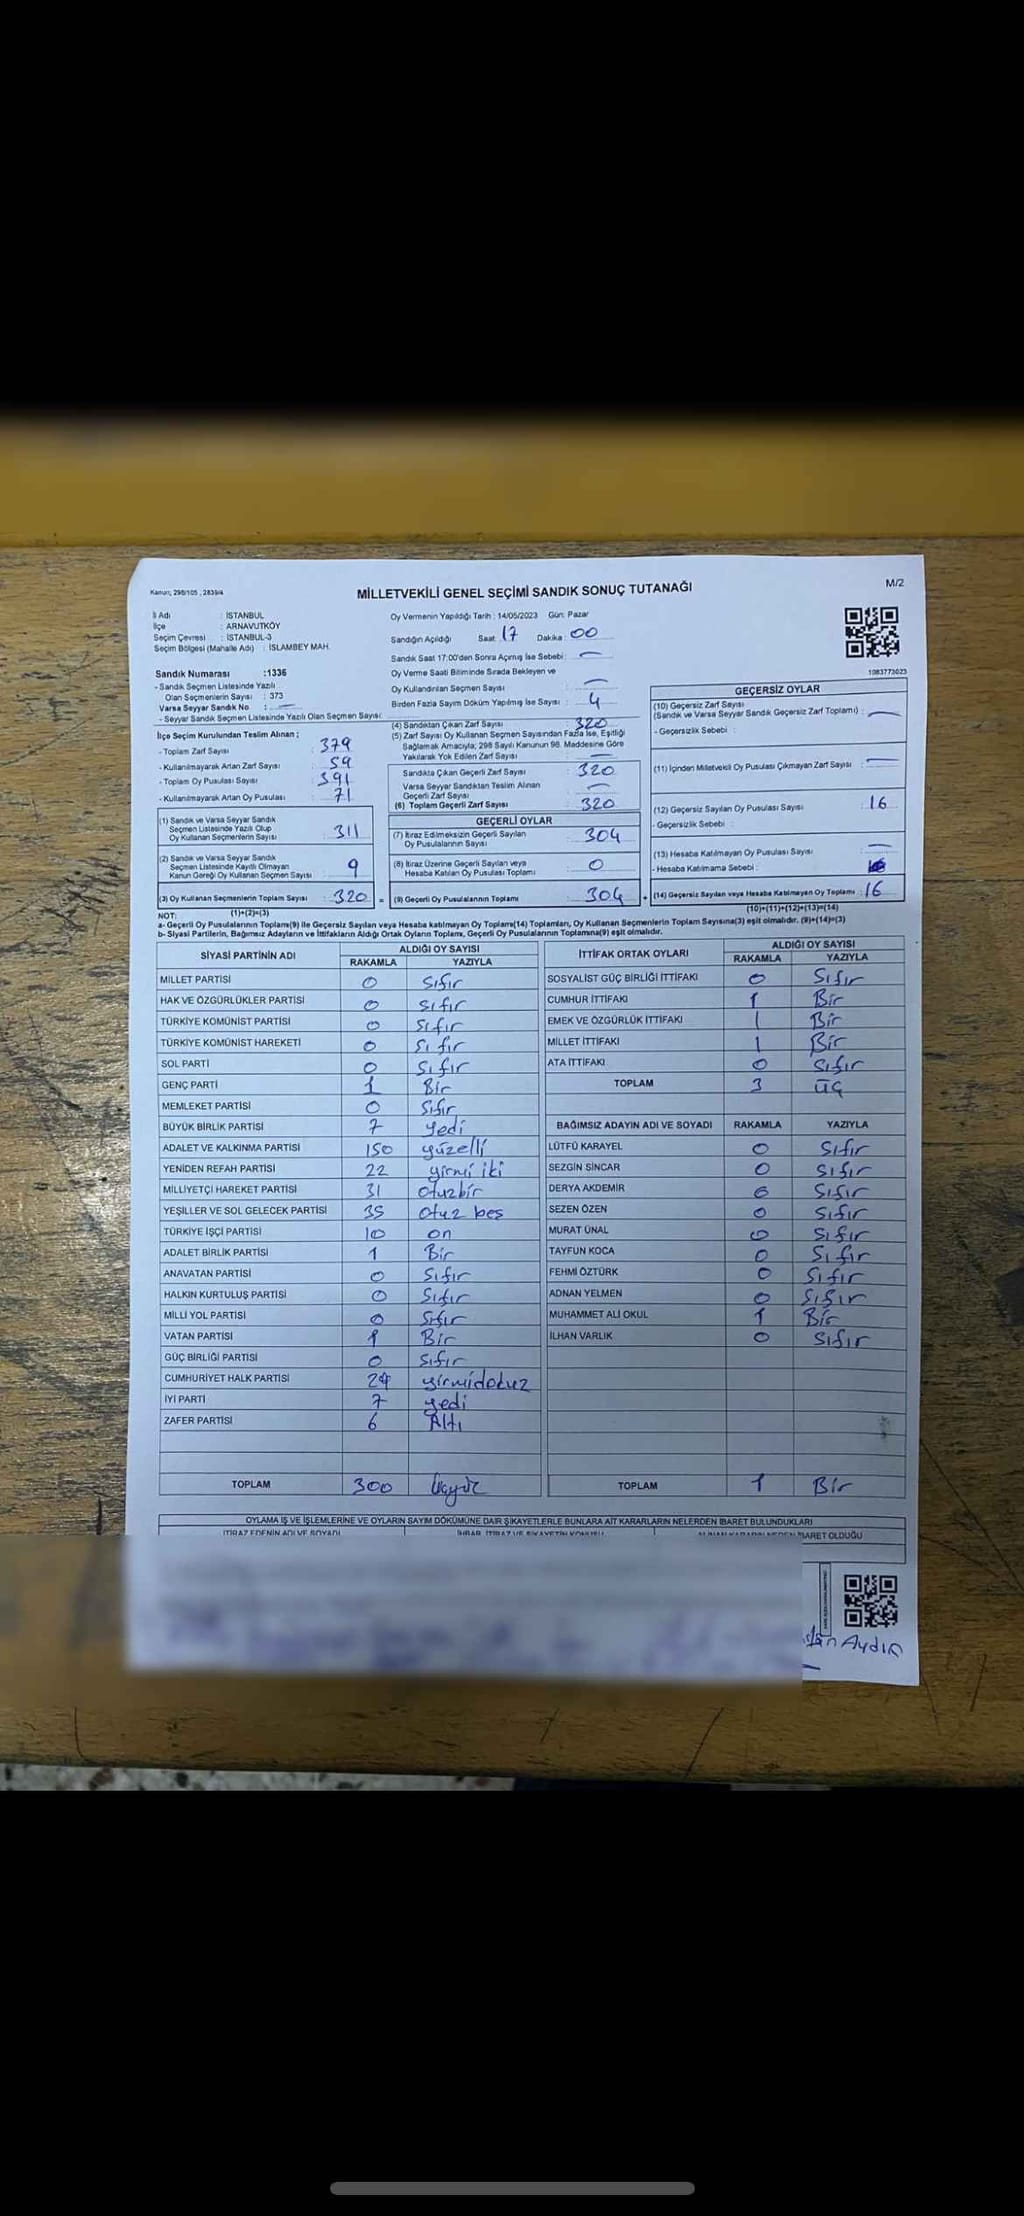 Kanun; 298/105 , 2839/4
MİLLETVEKİLİ GENEL SEÇİMİ SANDIK SONUÇ TUTANAĞI
M/2
İl Adı : İSTANBUL
İlçe : ARNAVUTKÖY
Seçim Çevresi : İSTANBUL-3
Seçim Bölgesi (Mahalle Adı) : İSLAMBEY MAH.
Oy Vermenin Yapıldığı Tarih : 14/05/2023 Gün: Pazar
Sandığın Açıldığı Saat: 17 Dakika: 00
Sandık Saat 17:00'den Sonra Açmış İse Sebebi: —
Oy Verme Saati Bitiminde Sırada Bekleyen ve
Oy Kullandırılan Seçmen Sayısı : —
Birden Fazla Sayım Döküm Yapılmış İse Sayısı : 4
1983773023
Sandık Numarası :1336
- Sandık Seçmen Listesinde Yazılı
Olan Seçmenlerin Sayısı : 373
Varsa Seyyar Sandık No : —
- Seyyar Sandık Seçmen Listesinde Yazılı Olan Seçmen Sayısı:
İlçe Seçim Kurulundan Teslim Alınan ;
- Toplam Zarf Sayısı : 379
- Kullanılmayarak Artan Zarf Sayısı : 59
- Toplam Oy Pusulası Sayısı : 391
- Kullanılmayarak Artan Oy Pusulası : 71
(1) Sandık ve Varsa Seyyar Sandık
Seçmen Listesinde Yazılı Olup
Oy Kullanan Seçmenlerin Sayısı : 311
(2) Sandık ve Varsa Seyyar Sandık
Seçmen Listesinde Kayıtlı Olmayan
Kanun Gereği Oy Kullanan Seçmen Sayısı : 9
(3) Oy Kullanan Seçmenlerin Toplam Sayısı : 320 =
(1)+(2)=(3)
(4) Sandıktan Çıkan Zarf Sayısı : 320
(5) Zarf Sayısı Oy Kullanan Seçmen Sayısından Fazla İse, Eşitliği
Sağlamak Amacıyla; 298 Sayılı Kanunun 98. Maddesine Göre
Yakılarak Yok Edilen Zarf Sayısı : —
Sandıkta Çıkan Geçerli Zarf Sayısı : 320
Varsa Seyyar Sandıktan Teslim Alınan
Geçerli Zarf Sayısı : —
(6) Toplam Geçerli Zarf Sayısı : 320
GEÇERLİ OYLAR
(7) İtiraz Edilmeksizin Geçerli Sayılan
Oy Pusulalarının Sayısı : 304
(8) İtiraz Üzerine Geçerli Sayılan veya
Hesaba Katılan Oy Pusulası Toplamı : 0
(9) Geçerli Oy Pusulalarının Toplamı : 304 +
GEÇERSİZ OYLAR
(10) Geçersiz Zarf Sayısı
(Sandık ve Varsa Seyyar Sandık Geçersiz Zarf Toplamı) : —
- Geçersizlik Sebebi :
(11) İçinden Milletvekili Oy Pusulası Çıkmayan Zarf Sayısı : —
(12) Geçersiz Sayılan Oy Pusulası Sayısı : 16
- Geçersizlik Sebebi :
(13) Hesaba Katılmayan Oy Pusulası Sayısı : —
- Hesaba Katılmama Sebebi :
(14) Geçersiz Sayılan veya Hesaba Katılmayan Oy Toplamı : 16
(10)+(11)+(12)+(13)=(14)
NOT:
a- Geçerli Oy Pusulalarının Toplamı(9) ile Geçersiz Sayılan veya Hesaba katılmayan Oy Toplamı(14) Toplamları, Oy Kullanan Seçmenlerin Toplam Sayısına(3) eşit olmalıdır. (9)+(14)=(3)
b- Siyasi Partilerin, Bağımsız Adayların ve İttifakların Aldığı Ortak Oyların Toplamı, Geçerli Oy Pusulalarının Toplamına(9) eşit olmalıdır.
SİYASİ PARTİNİN ADI ALDIĞI OY SAYISI
RAKAMLA YAZIYLA
MİLLET PARTİSİ 0 Sıfır
HAK VE ÖZGÜRLÜKLER PARTİSİ 0 sıfır
TÜRKİYE KOMÜNİST PARTİSİ 0 sıfır
TÜRKİYE KOMÜNİST HAREKETİ 0 sıfır
SOL PARTİ 0 sıfır
GENÇ PARTİ 1 Bir
MEMLEKET PARTİSİ 0 sıfır
BÜYÜK BİRLİK PARTİSİ 7 yedi
ADALET VE KALKINMA PARTİSİ 150 yüzelli
YENİDEN REFAH PARTİSİ 22 yirmi iki
MİLLİYETÇİ HAREKET PARTİSİ 31 otuzbir
YEŞİLLER VE SOL GELECEK PARTİSİ 35 otuz beş
TÜRKİYE İŞÇİ PARTİSİ 10 on
ADALET BİRLİK PARTİSİ 1 Bir
ANAVATAN PARTİSİ 0 Sıfır
HALKIN KURTULUŞ PARTİSİ 0 Sıfır
MİLLİ YOL PARTİSİ 0 Sıfır
VATAN PARTİSİ 1 Bir
GÜÇ BİRLİĞİ PARTİSİ 0 sıfır
CUMHURİYET HALK PARTİSİ 29 yirmidokuz
İYİ PARTİ 7 yedi
ZAFER PARTİSİ 6 Altı
TOPLAM 300 üçyüz
İTTİFAK ORTAK OYLARI ALDIĞI OY SAYISI
RAKAMLA YAZIYLA
SOSYALİST GÜÇ BİRLİĞİ İTTİFAKI 0 Sıfır
CUMHUR İTTİFAKI 1 Bir
EMEK VE ÖZGÜRLÜK İTTİFAKI 1 Bir
MİLLET İTTİFAKI 1 Bir
ATA İTTİFAKI 0 Sıfır
TOPLAM 3 üç
BAĞIMSIZ ADAYIN ADI VE SOYADI RAKAMLA YAZIYLA
LÜTFÜ KARAYEL 0 Sıfır
SEZGİN SİNCAR 0 sıfır
DERYA AKDEMİR 0 Sıfır
SEZEN ÖZEN 0 Sıfır
MURAT ÜNAL 0 Sıfır
TAYFUN KOCA 0 Sıfır
FEHMİ ÖZTÜRK 0 Sıfır
ADNAN YELMEN 0 Sıfır
MUHAMMET ALİ OKUL 1 Bir
İLHAN VARLIK 0 Sıfır
TOPLAM 1 Bir
OYLAMA İŞ VE İŞLEMLERİNE VE OYLARIN SAYIM DÖKÜMÜNE DAİR ŞİKAYETLERLE BUNLARA AİT KARARLARIN NELERDEN İBARET BULUNDUKLARI
İTİRAZ EDENİN ADI VE SOYADI
İBARET OLDUĞU
Aydın